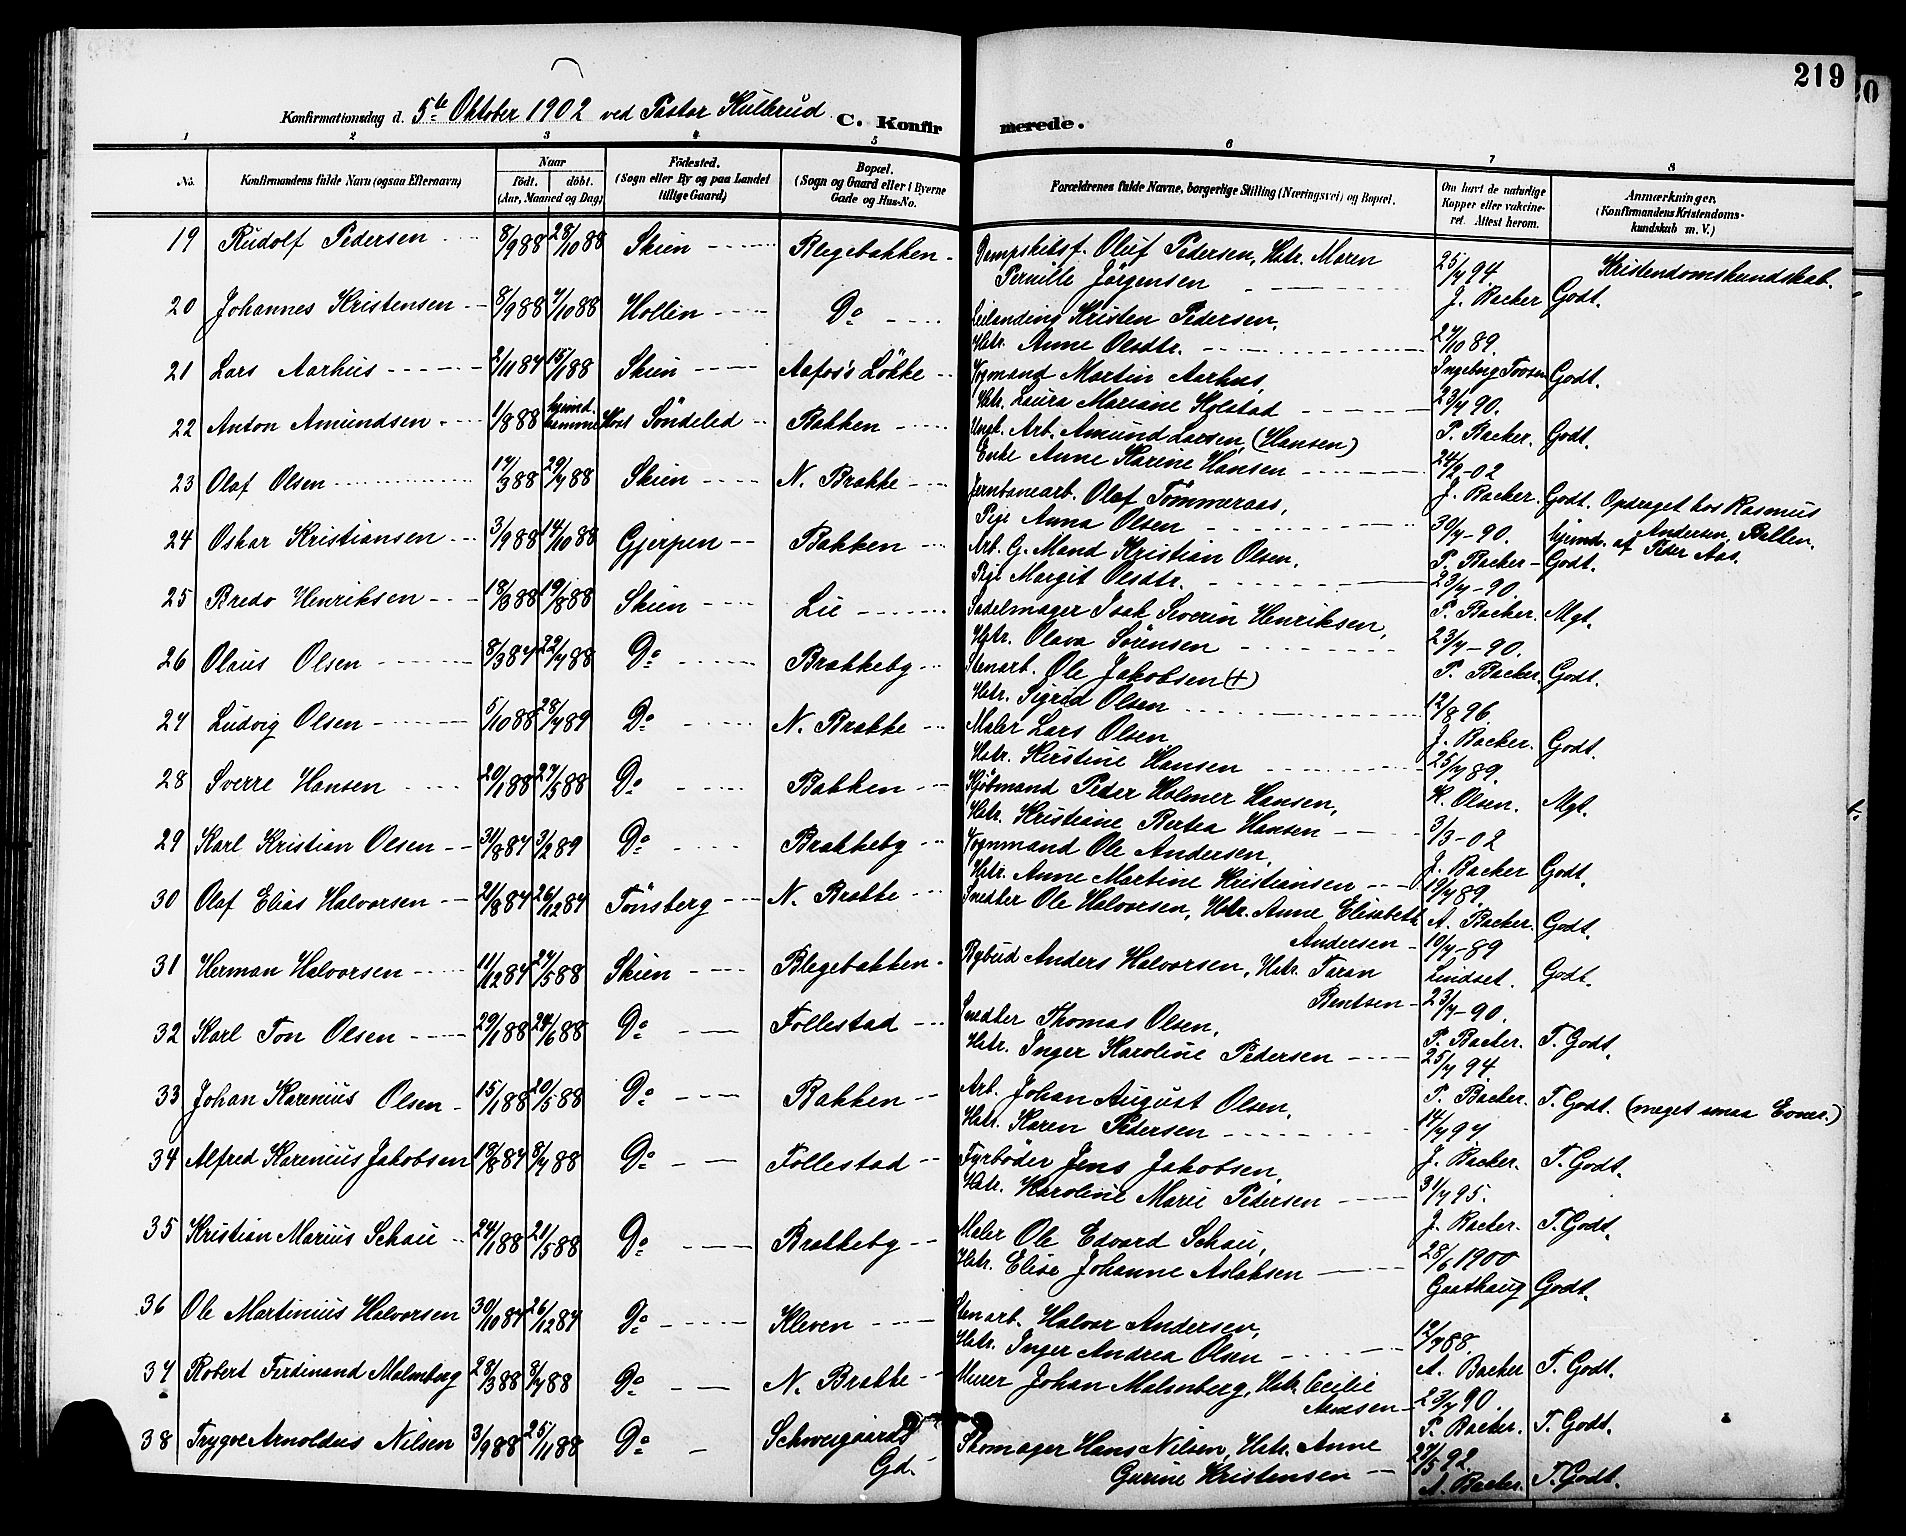 219
20
Konfirmationsdag d. 5te Oktober 1902 ved Pastor Kullerud C. Konfirmerede.
1 2 3 4 5 6 7 8
No. Konfirmandens fulde Navn (ogsaa Efternavn) Naar födt. döbt. (Aar, Maaned og Dag) Födested. (Sogn eller By og paa Landet tillige Gaard) Bopæl. (Sogn og Gaard eller i Byerne Gade og Hus-No. Forældrenes fulde Navne, borgerlige Stilling (Næringsvei) og Bopæl. Om havt de naturlige Kopper eller vakcineret. Attest herom. Anmærkninger. (Konfirmandens Kristendomskundskab m. V.)
19 Rudolf Pedersen 8/9 88 28/10 88 Skien Blegebakken Dempskibsf. Oluf Pedersen, Hstr. Maren Pernille Jörgensen 25/7 94. J. Backer Kristendomskundskab. Godt.
20 Johannes Kristensen 8/9 88 7/10 88 Hollen Do Leilænding Kristen Pedersen, Hstr. Anne Olsdtr. 27/10 89. Ingeborg Godt.
21 Lars Aarhus 2/11 87 15/1 88 Skien Aafos's Lökke Vognmand Martin Aarhus, Hstr. Laura Mariane Kolstad 23/7 90. P. Backer. Godt.
22 Anton Amundsen 1/8 88 hjemd. Vors Söndeled Bakken Ungk. Arb. Amund Larsen, (Hansen) Enke Anne Karine Hansen 24/2-02 J. Backer. Godt. Opdraget hos Rasmus Andersen, Bellen. hjemd. af Peder Aas.
23 Olaf Olsen 17/3 88 29/7 88 Skien N. Brække Jernbanearb. Olaf Tömmeraas, Pige Anna Olsen 30/7-90. P. Backer Godt.
24 Oskar Kristiansen 3/9 88 14/10 88 Gjerpen Bakken Arb. G. Mand Kristian Olsen, Pige Margit Olsdtr. 23/7-90. P. Backer. Mgt.
25 Bredo Henriksen 18/3 88 19/8 88 Skien Lie Sadelmager Isak Severin Henriksen, Hstr. Olava Sörensen 23/7-90. P. Backer. Godt.
26 Olaus Olsen 8/3 87 22/7 88 Do Brækkeby Stenarb. Ole Jakobsen (+) Hstr. Sigrid Olsen 12/8 96. J. Backer. Godt.
27 Ludvig Olsen 5/10 88 28/7 89 Do N. Brække Maler Lars Olsen Hstr. Kirstine Hansen 25/7 89. K. Olsen. Mgt.
28 Sverre Hansen 20/1 88 27/5 88 Do Bakken Kjöbmand Peder Holmer Hansen, Hstr. Kristiane Bertea Hansen 3/3-02 J. Backer Godt.
29 Karl Kristian Olsen 31/8 87 3/2 89 Do Brækkeby Vognmand Ole Andersen, Hstr. Anne Martine Kristiansen 19/7 89. A. Backer. Godt.
30 Olaf Elias Halvorsen 21/8 87 26/12 87 Tönsberg N. Brække Snedker Ole Halvorsen, Hstr. Anne Elisabeth Andersen 10/7-89 Lindset. Godt.
31 Herman Halvorsen 11/12 87 27/5 88 Skien Blegebakken Rybud Anders Halvorsen, Hstr. Taran Bentsen 23/7-90. P. Backer. T. Godt.
32 Karl Ton Olsen 29/1 88 24/6 88 Do Follestad Snedker Thomas Olsen, Hstr. Inger Karoline Pedersen 25/7 94 P. Backer. T. Godt. (meget smaa Evner.)
33 Johan Karenius Olsen 15/1 88 20/5 88 Do Bakken Arb. Johan August Olsen, Hstr. Karen Pedersen 14/7 97. J. Backer. T. Godt.
34 Alfred Karenius Jakobsen 19/8 87 8/7 88 Do Follestad Fyrböder Jens Jakobsen, Hstr. Karoline Marie Pedersen 31/7 95. J. Backer. T. Godt.
35 Kristian Marius Schau 24/1 88 21/5 88 Do Brækkeby Maler Ole Edvard Schau, Hstr. Elise Johanne Aslaksen 28/6 1900 Gaathaug Godt.
36 Ole Martinius Halvorsen 30/10 87 26/12 87 Do Kleven Stenarb. Halvor Andersen, Hstr. Inger Andrea Olsen 12/7 88. A. Backer T. Godt.
37 Robert Ferdinand Malmberg 28/3 88 8/7 88 Do N. Brække Murer Johan Malmberg, Hstr. Cecilie 23/7 90. P. Backer. T. Godt.
38 Trygve Arnoldus Nilsen 3/9 88 25/11 88 Do Schweigaards Gd. Skomager Hans Nilsen, Hstr. Anne Gurine Kristensen 27/5 92. A. Backer. T. Godt.